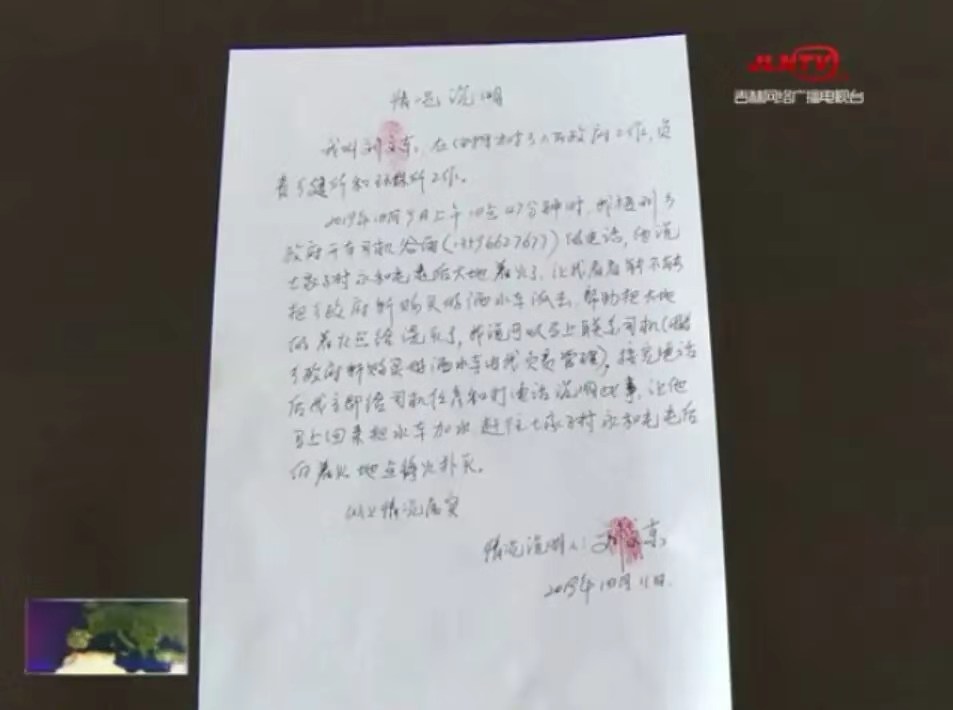 JLNTV
吉林网络广播电视台
情况说明
我叫刘文东,在 乡人民政府工作,负
责乡建所和环保所工作。
2019年10月9日上午10点47分钟时,我接到乡
政府干部司机 电话,他说
村永和屯屯后大地着火了,让我看看能不能
把乡政府新购买的洒水车派去,帮助把大地
的着火点给浇灭了,我说可以马上联系司机(因
乡政府新购买的洒水车由我负责管理),接完电话
后我立即给司机 打电话说明此事,让他
马上回来把水车加水赶往 村永和屯屯后
的着火地点将火扑灭。
以上情况属实
情况说明人:刘文东
2019年10月11日.